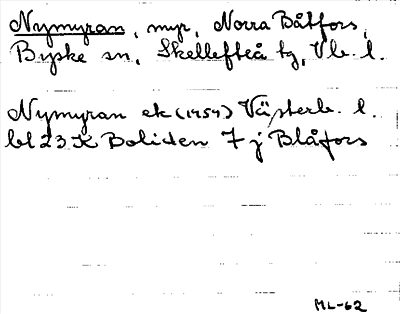 Nymyran, myr, Norra Båtfors,
Byske sn, Skellefteå tg, Vb. l.
Nymyran ek (1959) Västerb. l.
bl 23 K Boliden 7 j Blåfors
ML-62